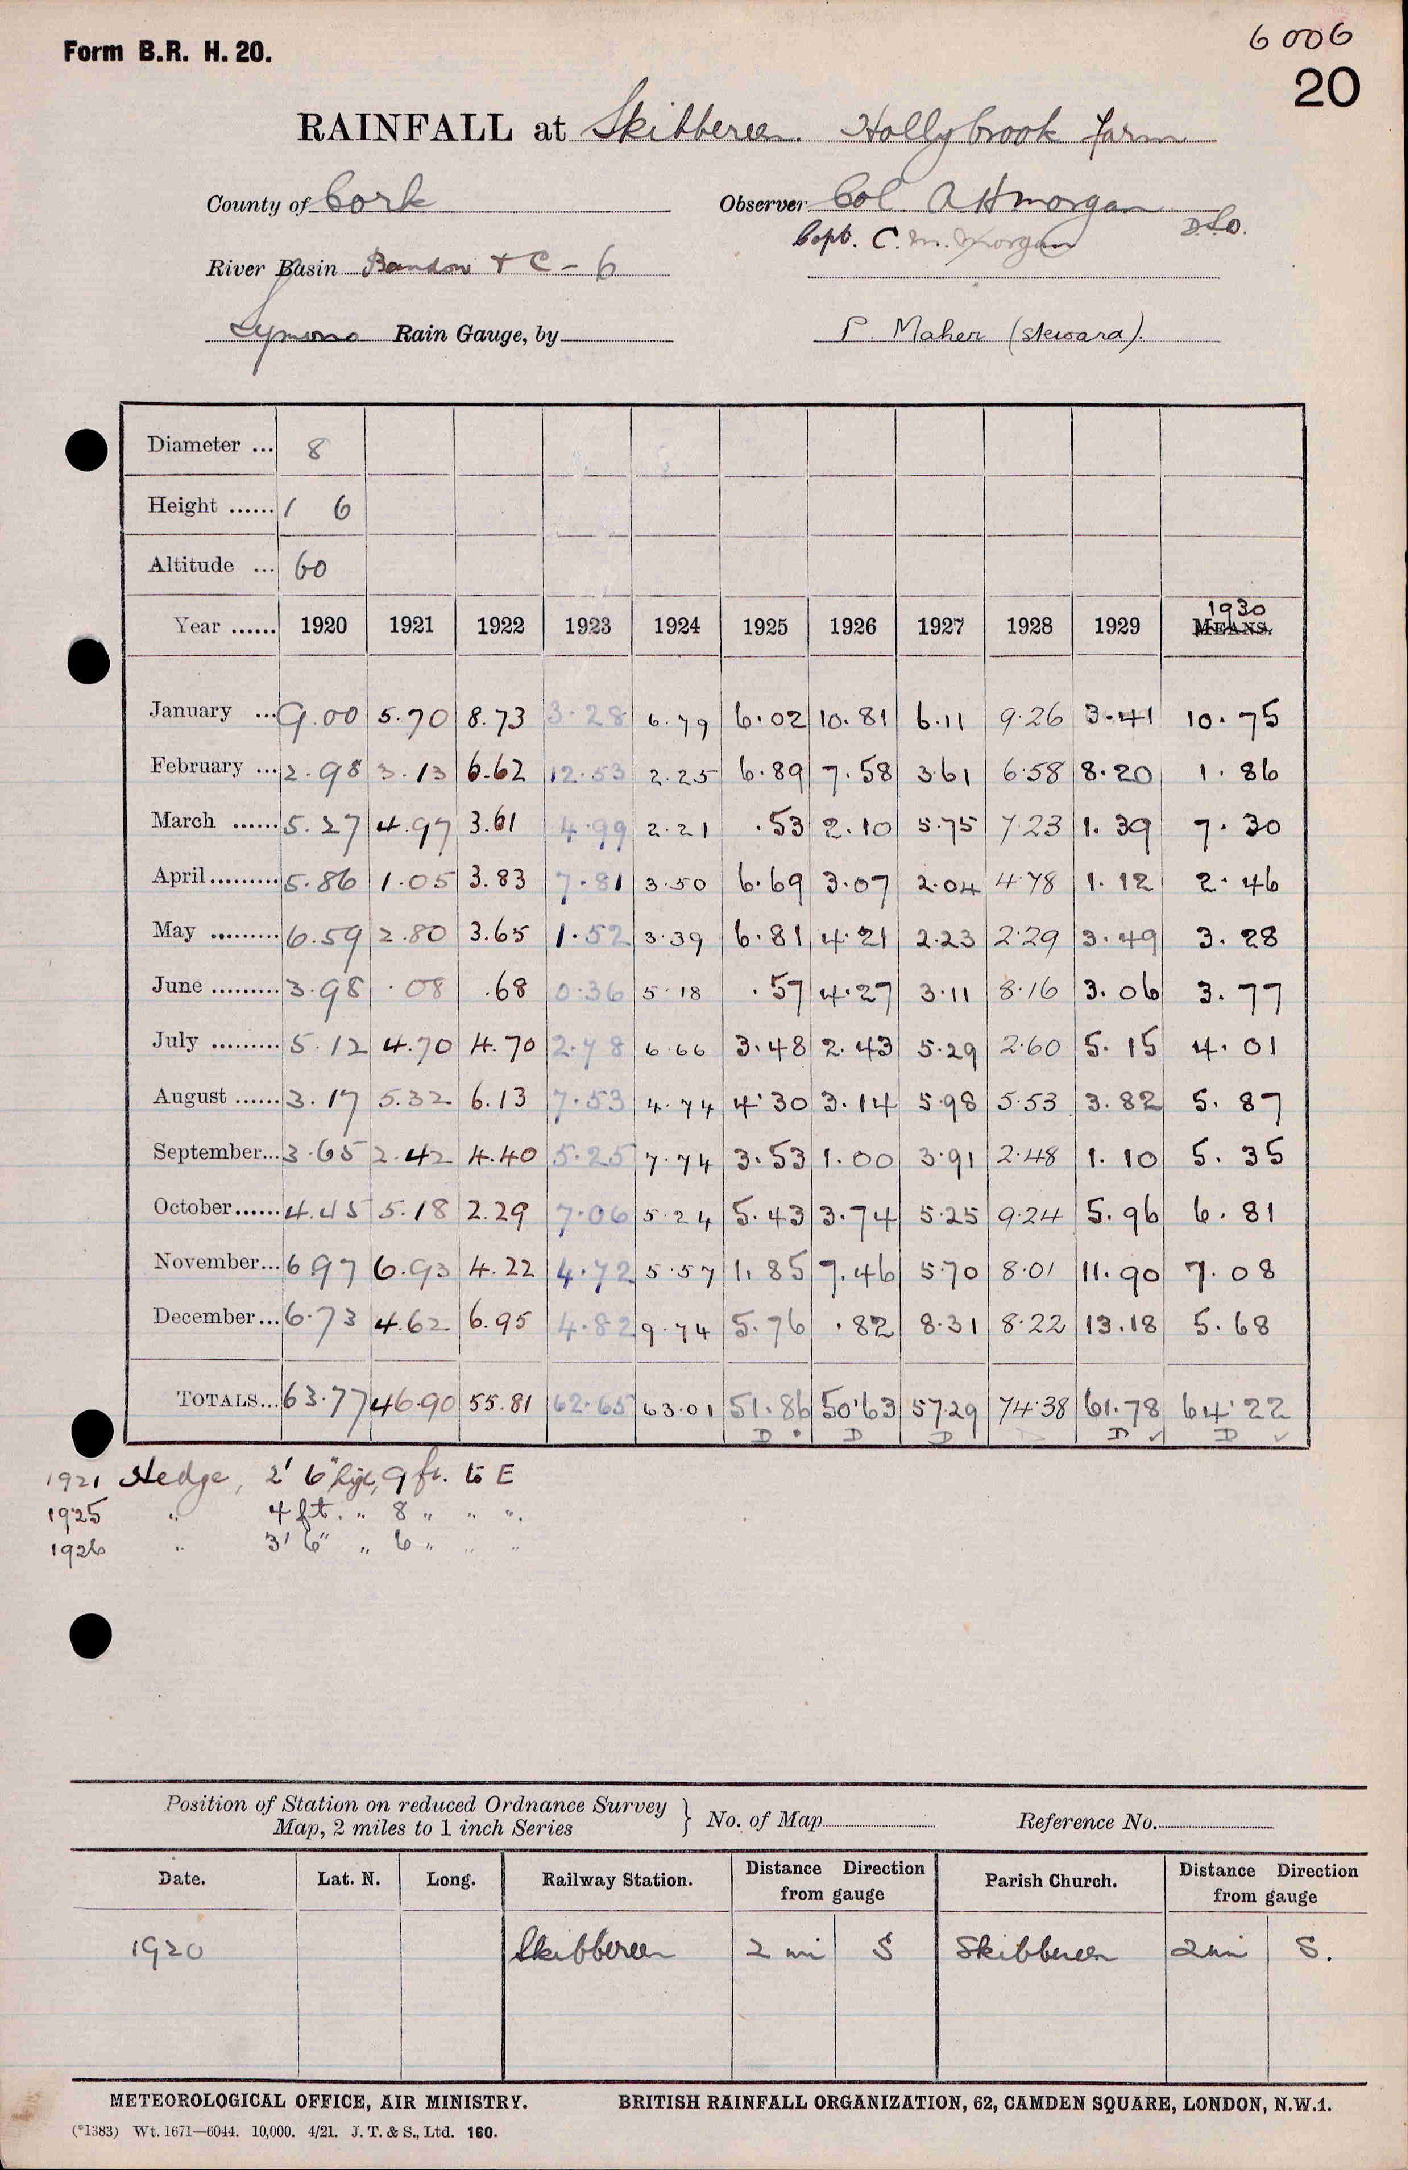 6006
Form B.R. H. 20.
20
RAINFALL at Skibbereen. Hollybrook Farm
County of Cork
Observer Col. A H Morgan D.S.O.
Capt. C. M. Morgan
River Basin Bandon + C - 6
Symons Rain Gauge, by
P. Maher (steward).
Diameter ... 8
Height ...... 1 6
Altitude ... 60
1930
Year ...... 1920 1921 1922 1923 1924 1925 1926 1927 1928 1929 MEANS.
January ... 9.00 5.70 8.73 3.28 6.79 6.02 10.81 6.11 9.26 3.41 10.75
February ... 2.98 3.13 6.62 12.53 2.25 6.89 7.58 3.61 6.58 8.20 1.86
March ...... 5.27 4.97 3.61 4.99 2.21 .53 2.10 5.75 7.23 1.39 7.30
April ......... 5.86 1.05 3.83 7.81 3.50 6.69 3.07 2.04 4.78 1.12 2.46
May ......... 6.59 2.80 3.65 1.52 3.39 6.81 4.21 2.23 2.29 3.49 3.28
June ......... 3.98 .08 .68 0.36 5.18 .57 4.27 3.11 8.16 3.06 3.77
July ......... 5.12 4.70 4.70 2.78 6.66 3.48 2.43 5.29 2.60 5.15 4.01
August ...... 3.17 5.32 6.13 7.53 4.74 4.30 3.14 5.98 5.53 3.82 5.87
September... 3.65 2.42 4.40 5.25 7.74 3.53 1.00 3.91 2.48 1.10 5.35
October...... 4.45 5.18 2.29 7.06 5.24 5.43 3.74 5.25 9.24 5.96 6.81
November... 6 97 6.93 4.22 4.72 5.57 1.85 7.46 5 70 8.01 11.90 7.08
December... 6.73 4.62 6.95 4.82 9.74 5.76 .82 8.31 8.22 13.18 5.68
TOTALS... 63.77 46.90 55.81 62.65 63.01 51.86 50.63 57.29 74.38 61.78 64.22
D D D D D ✓ D ✓
1921 Hedge, 2' 6" high, 9 ft. to E
1925 " 4 ft. " 8 " " ".
1926 " 3' 6" " 6 " " "
Position of Station on reduced Ordnance Survey
Map, 2 miles to 1 inch Series } No. of Map Reference No.
Date. Lat. N. Long. Railway Station. Distance Direction from gauge Parish Church. Distance Direction from gauge
1920 Skibbereen 2 mi S Skibbereen 2 mi S.
METEOROLOGICAL OFFICE, AIR MINISTRY. BRITISH RAINFALL ORGANIZATION, 62, CAMDEN SQUARE, LONDON, N.W.1.
(*1383) Wt. 1671—6044. 10,000. 4/21. J. T. & S., Ltd. 160.